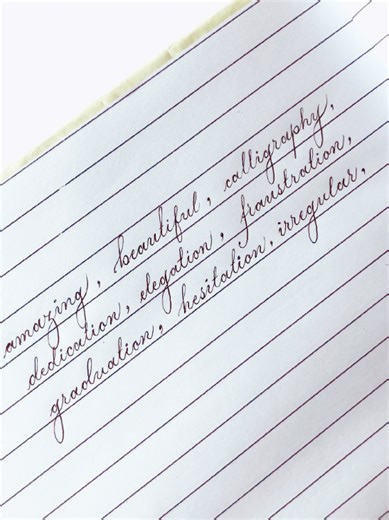 amazing, beautiful, calligraphy,
dedication, elegation, fraustration,
graduation, hesitation, irregular,